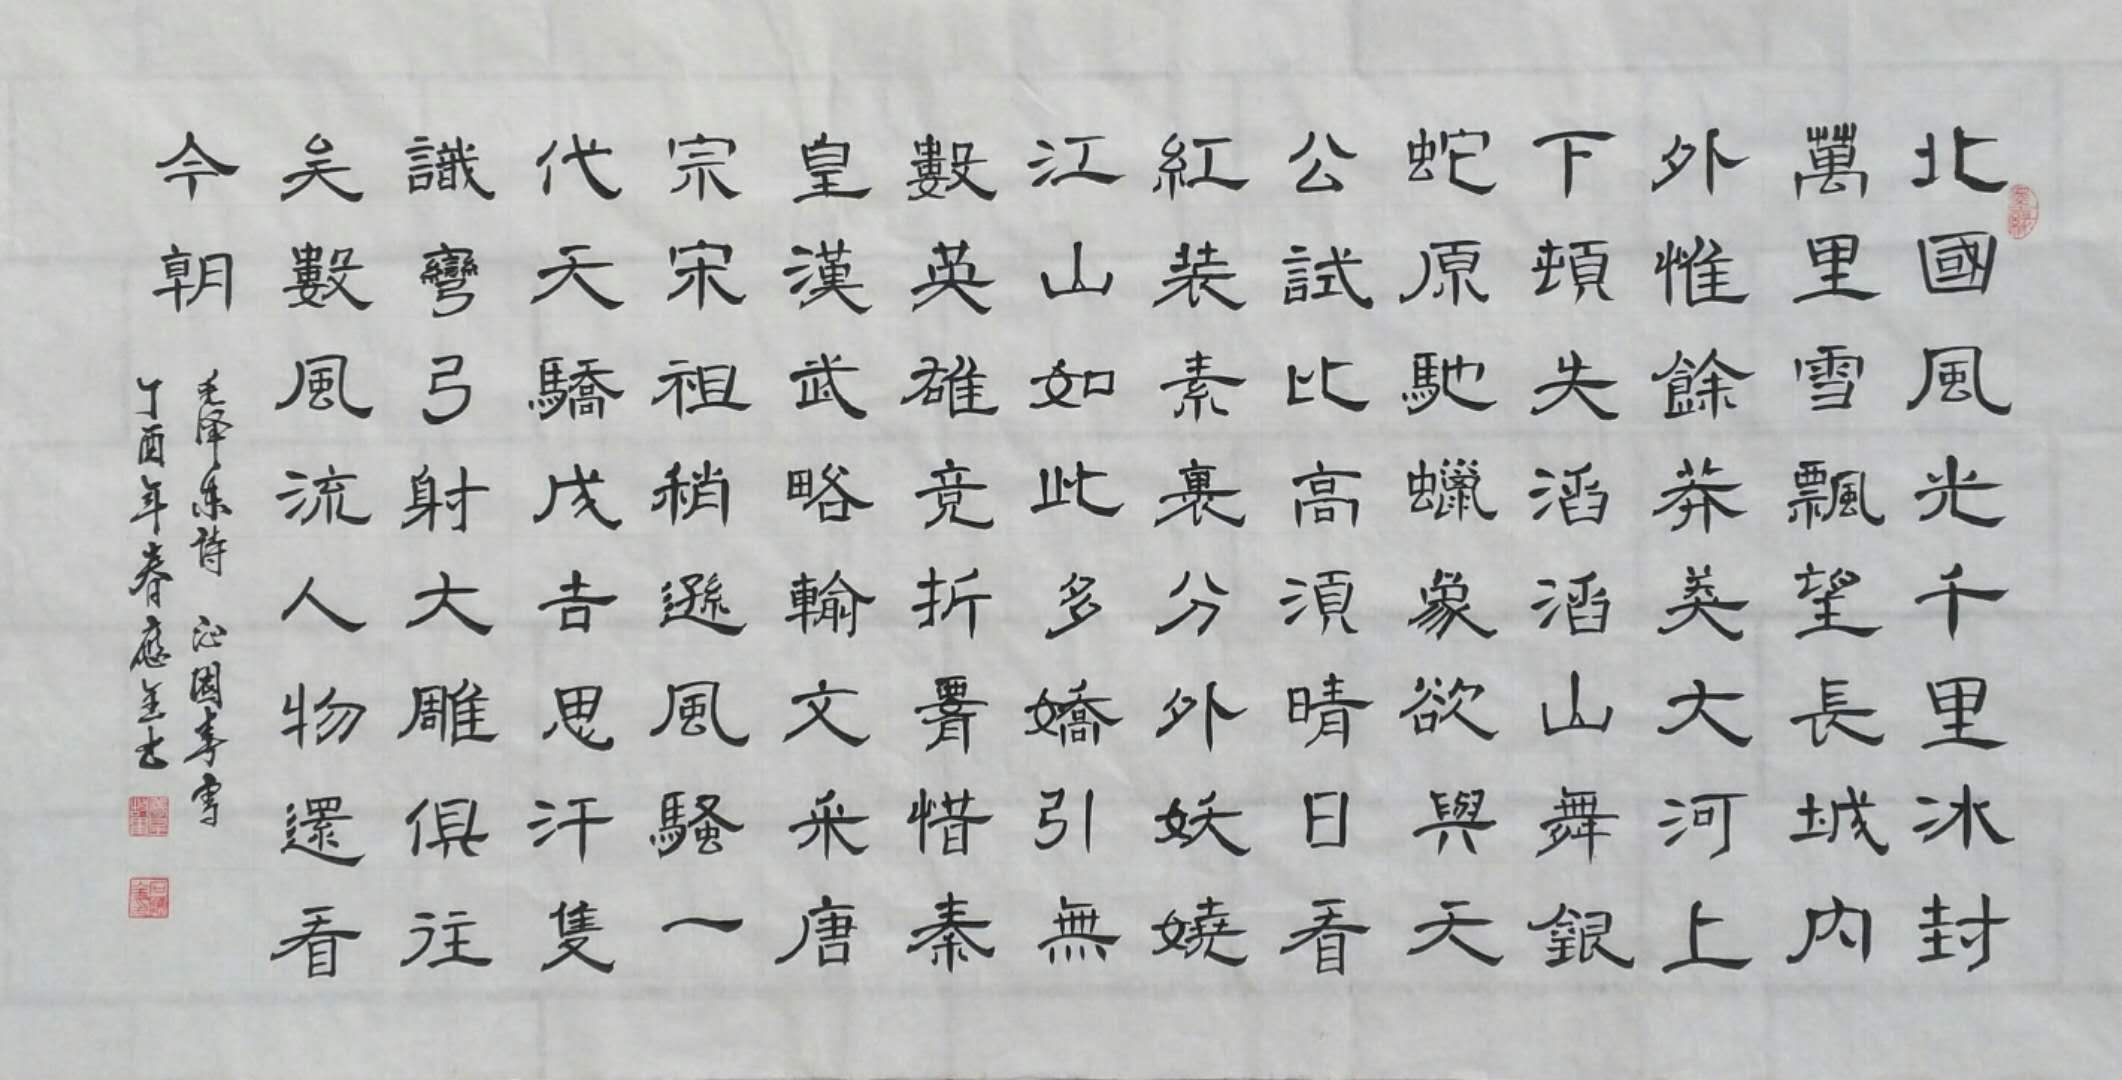 北國風光千里冰封
萬里雪飄望長城内
外惟餘莽莽大河上
下頓失滔滔山舞銀
蛇原馳蠟象欲與天
公試比高須晴日看
紅装素裹分外妖嬈
江山如此多嬌引無
數英雄竞折霄惜秦
皇漢武略輸文采唐
宗宋祖稍遜風騷一
代天驕成吉思汗隻
識彎弓射大雕俱往
矣數風流人物還看
今朝
毛泽东詩 沁園春雪
丁酉年春